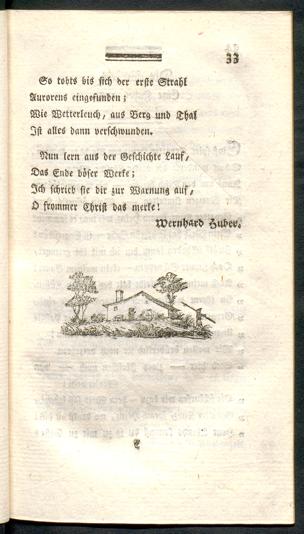 33
So tobts bis sich der erste Strahl
Aurorens eingefunden;
Wie Wetterleuch, aus Berg und Thal
Ist alles dann verschwunden.
Nun lern aus der Geschichte Lauf,
Das Ende böser Werke;
Ich schrieb sie dir zur Warnung auf,
O frommer Christ das merke!
Wernhard Huber.
C